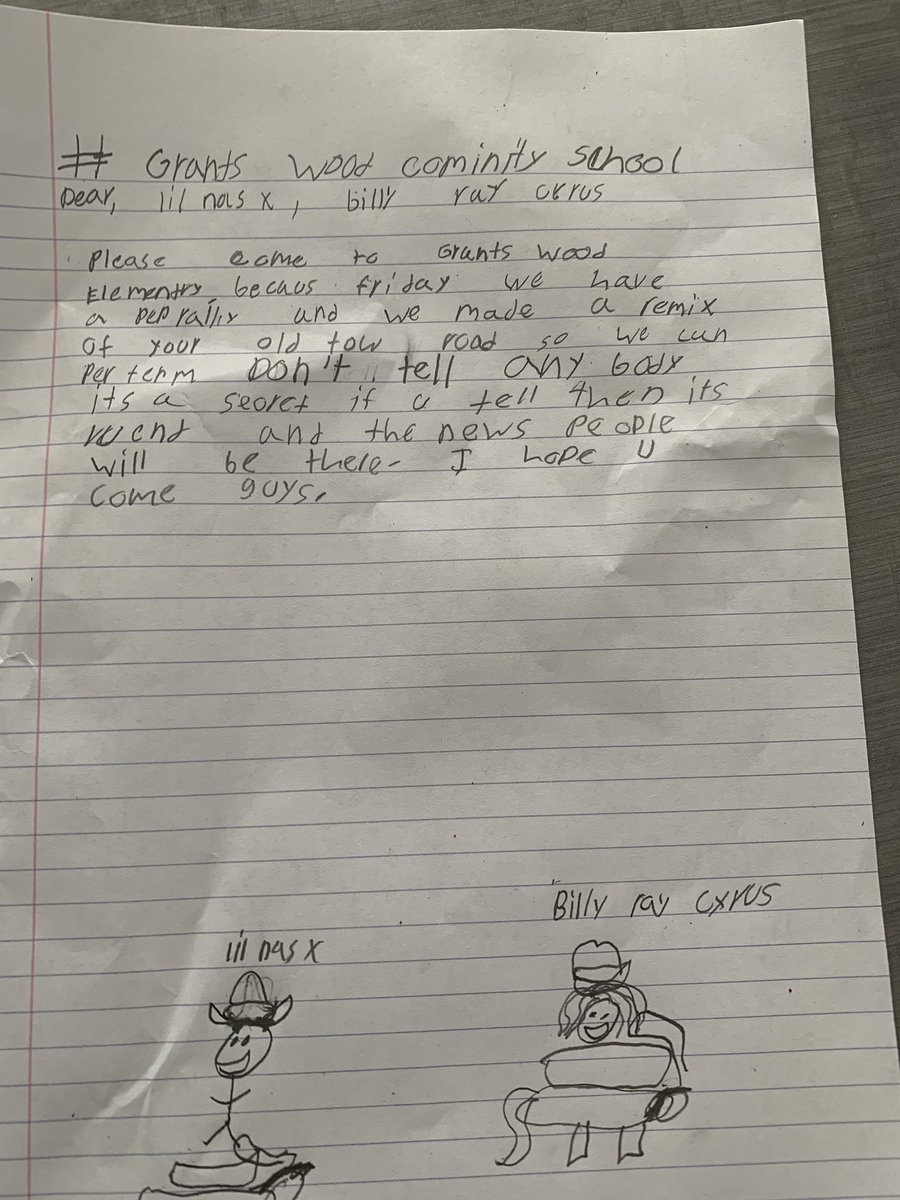 # Grants Wood cominity school
Dear, lil nas x, billy ray cyrus
Please come to Grants Wood
Elementry, becaus friday we have
a pep rally and we made a remix
of your old tow road so we can
Perterm Don't tell any body
its a secret if u tell then its
and the news people
will be there- I hope U
come guys.
Billy ray cyrus
lil nas x